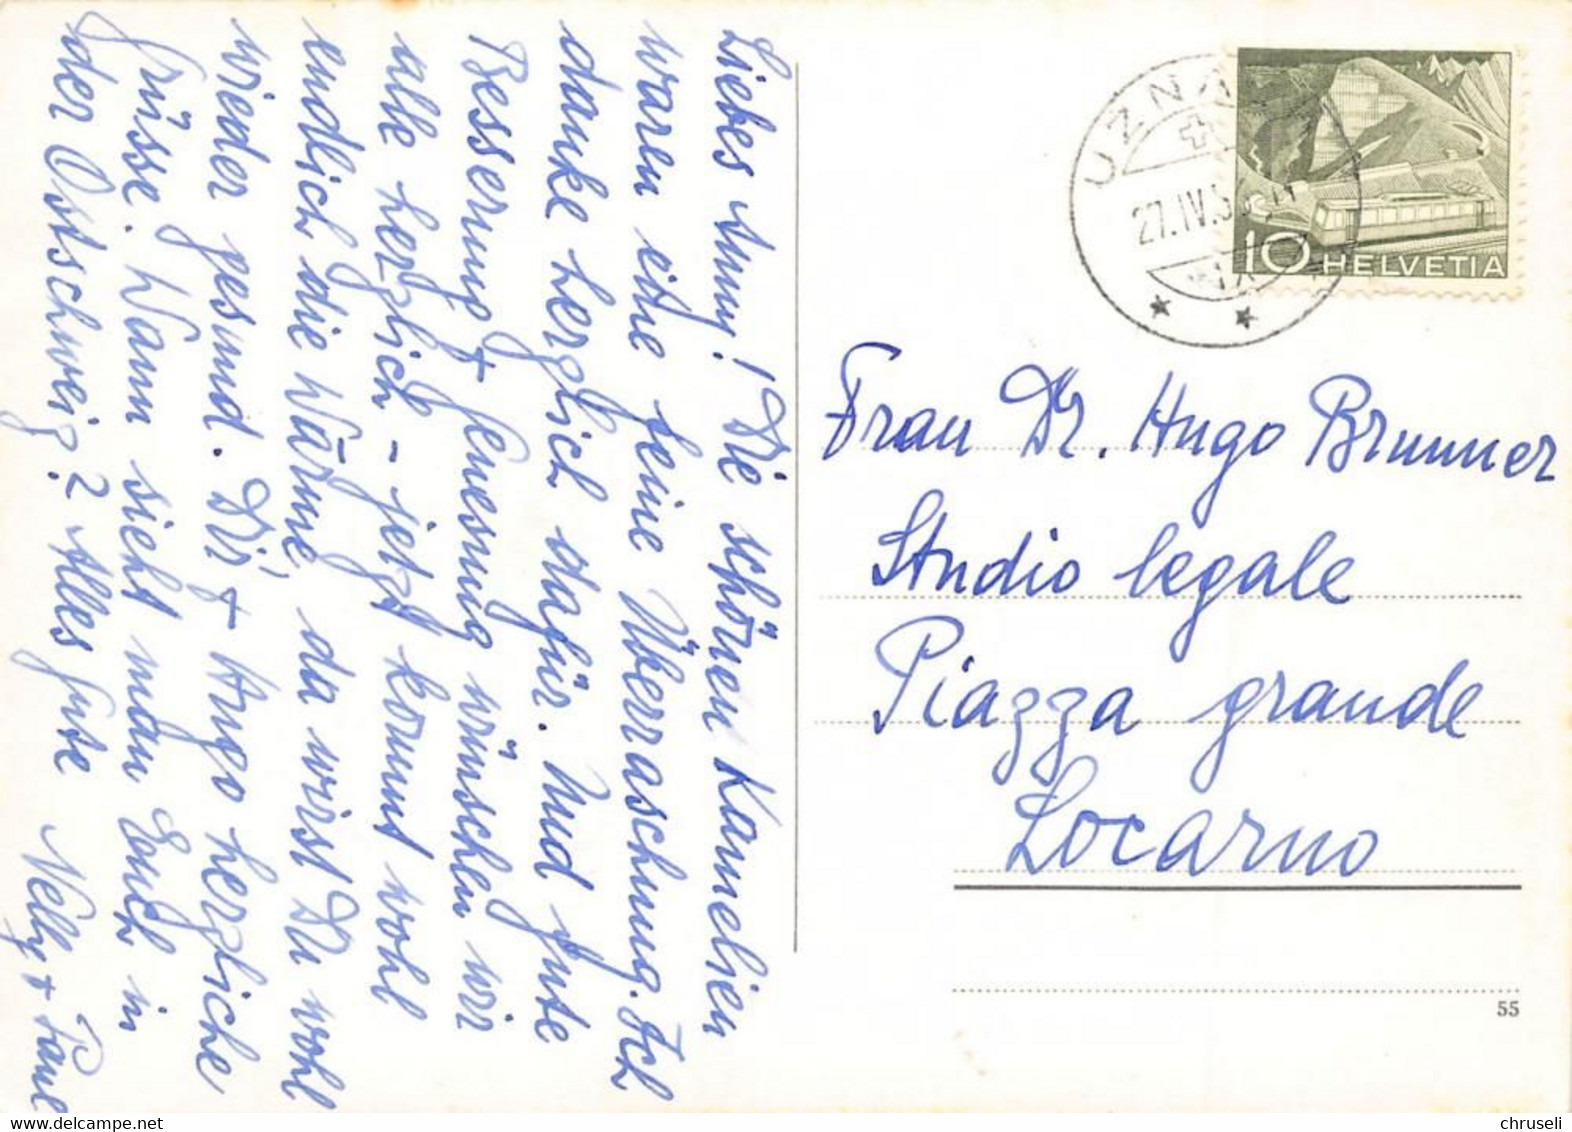 Liebes Anny! Die schönen Kamelien
waren eine feine Überraschung. Ich
danke herzlich dafür. Und gute
Besserung & Genesung wünschen wir
alle herzlich – jetzt kommt wohl
endlich die Wärme, da wirst Du wohl
wieder gesund. Dir & Hugo herzliche
Grüsse. Wann sieht man Euch in
der Ostschweiz? Alles Gute Nelly & Paul
UZNACH
27.IV.5
10 HELVETIA
Frau Dr. Hugo Brunner
Studio legale
Piazza grande
Locarno
55
© chruseli